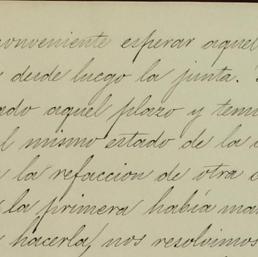 conveniente esperar aquel
desde luego la junta.
ado aquel plazo y
l mismo estado de la
la refaccion de otra
la primera había
hacerla, nos resolvimos